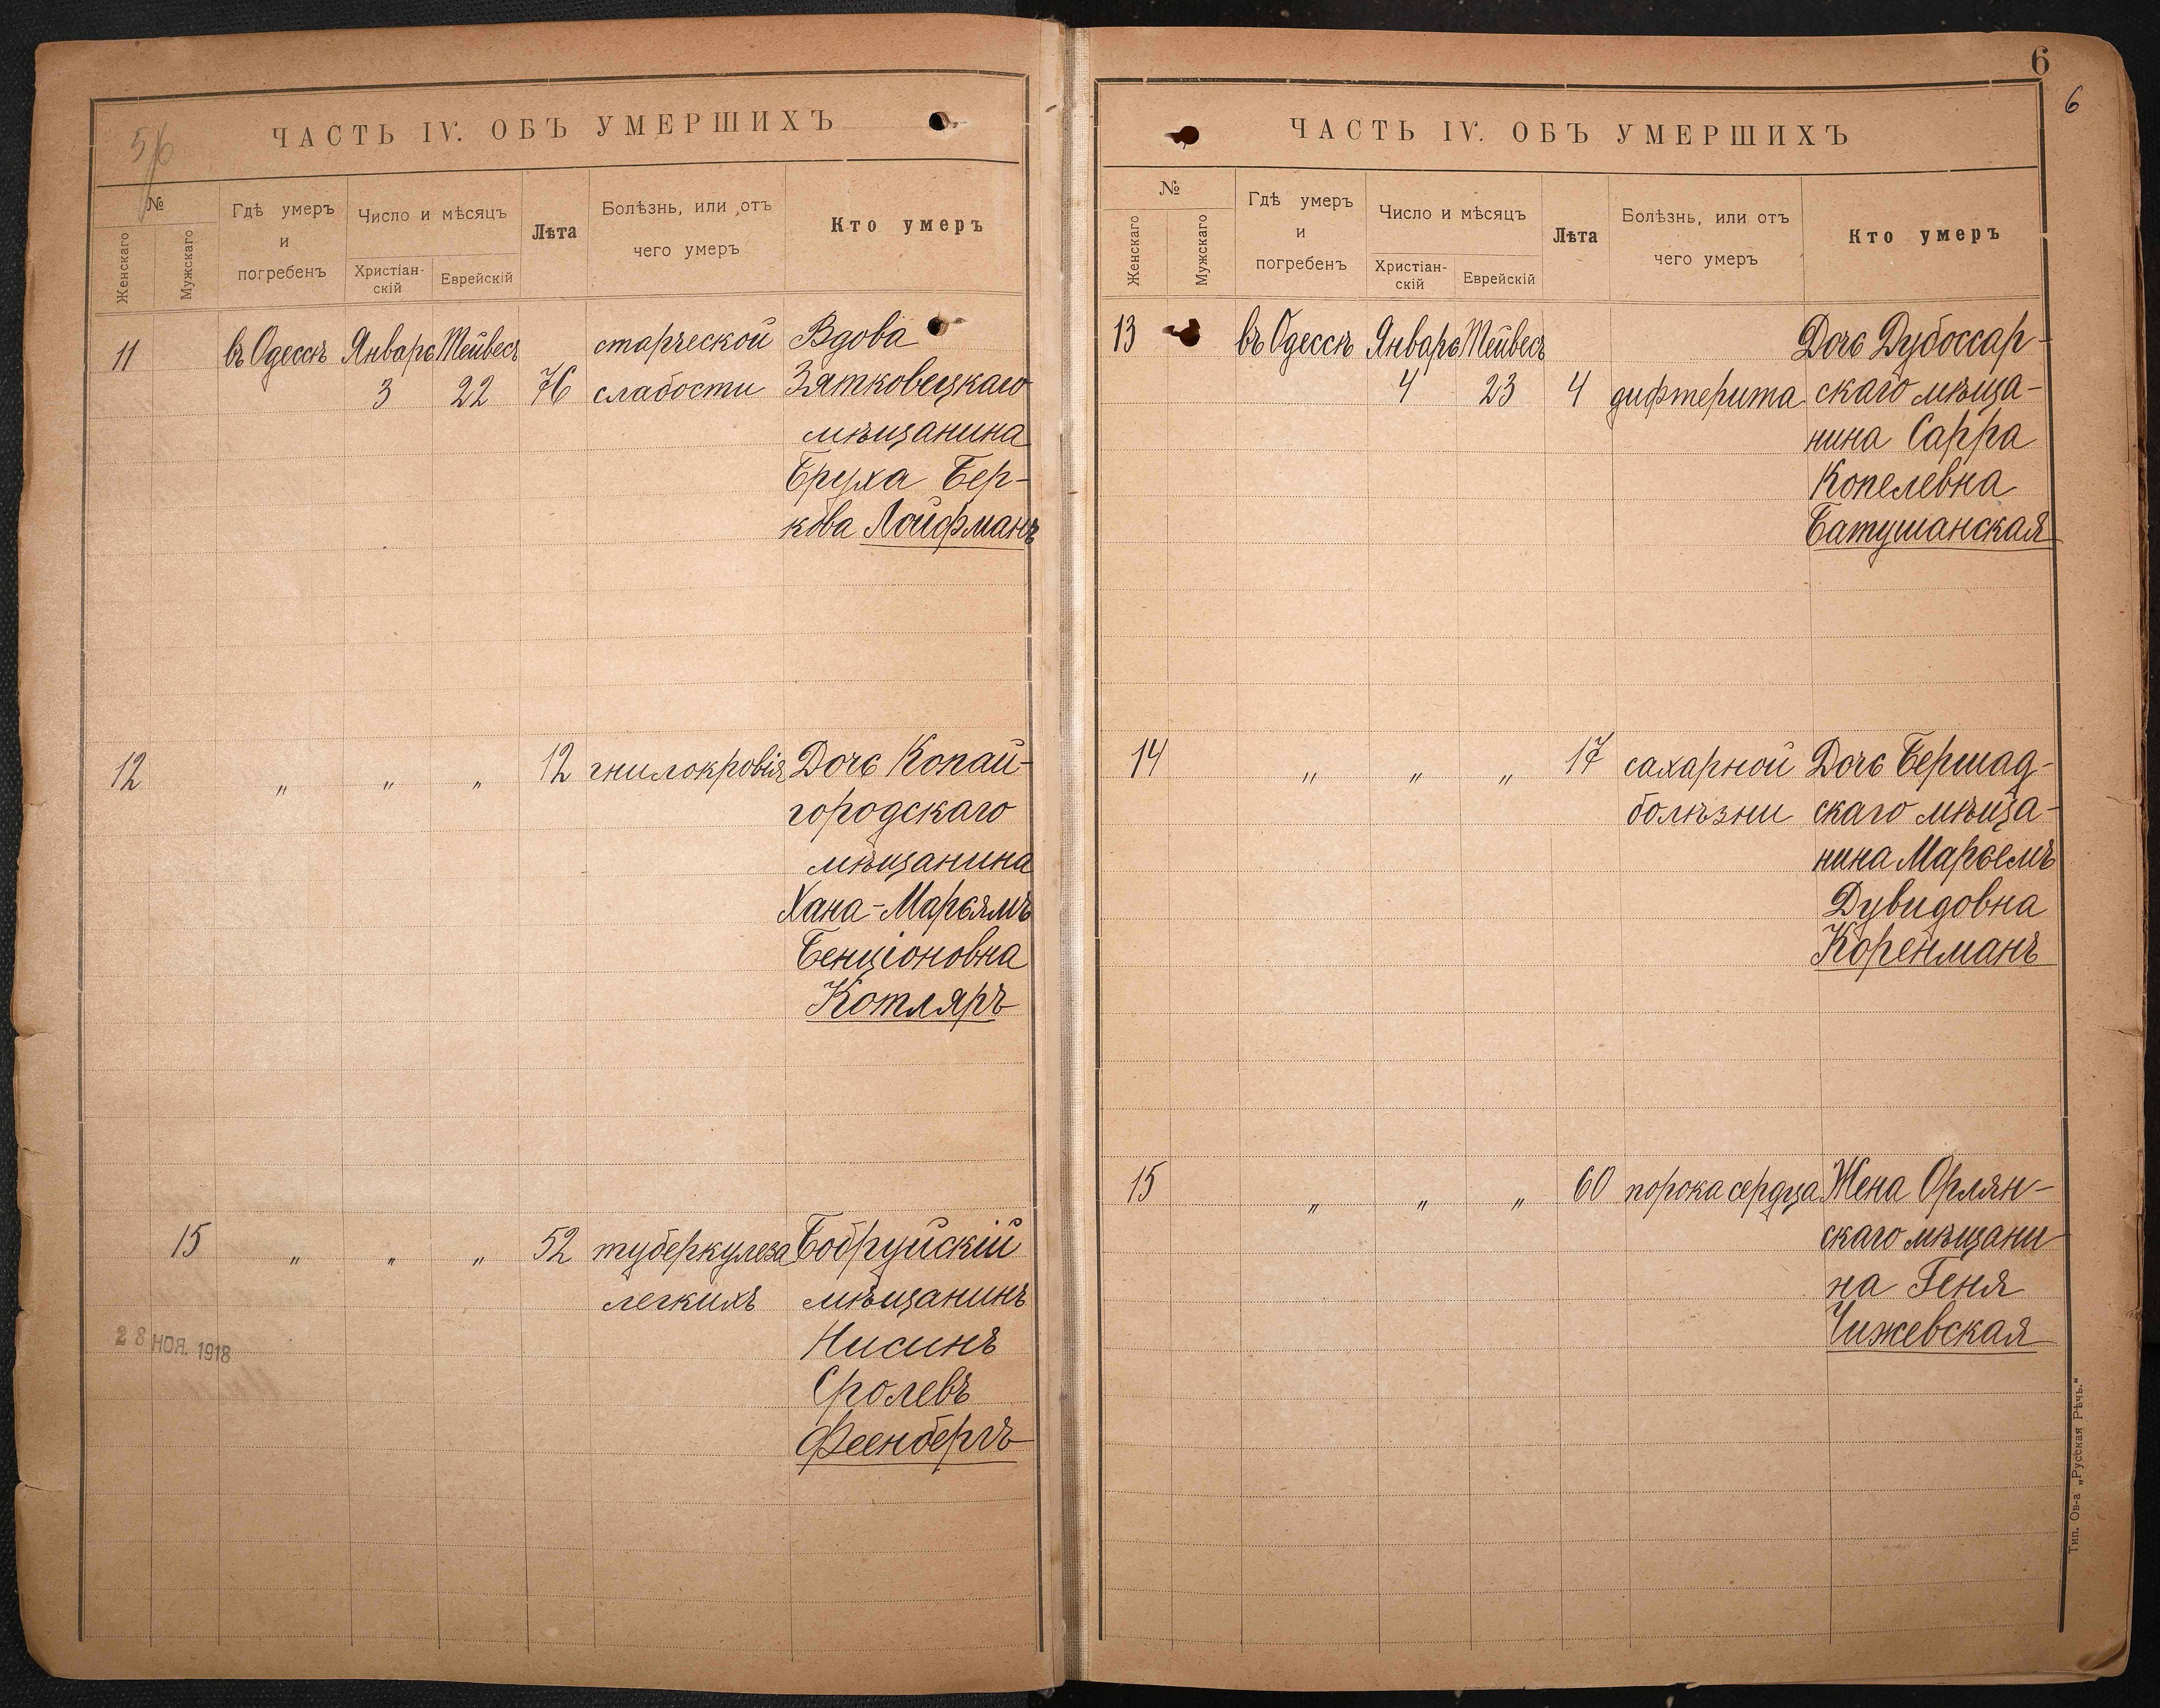 5/6
ЧАСТЬ IV. ОБЪ УМЕРШИХЪ
№
Женскаго
Мужскаго
Гдѣ умеръ
и
погребенъ
Число и мѣсяцъ
Христіан-
скій
Еврейскій
Лѣта
Болѣзнь, или отъ
чего умеръ
Кто умеръ
11 въ Одессѣ Январь Тейвесъ старческой Вдова
3 22 76 слабости Зятковецкаго
мѣщанина
Бруха Бер-
кова Лойфманъ
12 „ „ „ 12 гнилокровія Дочь Копай-
городскаго
мѣщанина
Хана-Марьямъ
Бенціоновна
Котляръ
15 „ „ „ 52 туберкулеза Бобруйскій
легкихъ мѣщанинъ
Нисинъ
Сролевъ
Феенбергъ
28 НОЯ. 1918
6
6
ЧАСТЬ IV. ОБЪ УМЕРШИХЪ
№
Женскаго
Мужскаго
Гдѣ умеръ
и
погребенъ
Число и мѣсяцъ
Христіан-
скій
Еврейскій
Лѣта
Болѣзнь, или отъ
чего умеръ
Кто умеръ
13 въ Одессѣ Январь Тейвесъ Дочь Дубоссар-
4 23 4 дифтерита скаго мѣща-
нина Сарра
Копелевна
Батушанская
14 „ „ „ 17 сахарной Дочь Бершад-
болѣзни скаго мѣща-
нина Марьемъ
Дувидовна
Коренманъ
15 „ „ „ 60 порока сердца Жена Орлян-
скаго мѣщани-
на Геня
Чижевская
Тип. Ов-а „Русская Рѣчь."